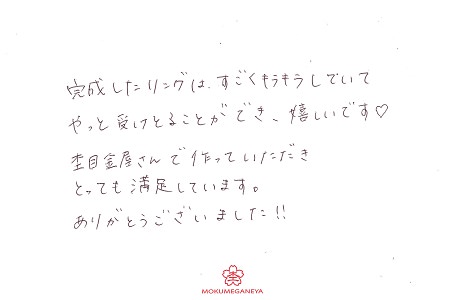 完成したリングは、すごくキラキラしていて
やっと受けとることができ、嬉しいです♡
杢目金屋さんで作っていただき
とっても満足しています。
ありがとうございました!!
MOKUMEGANEYA